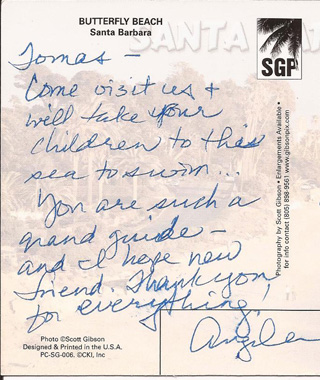 BUTTERFLY BEACH
Santa Barbara
SANTA
SGP
Tomas -
Come visit us &
will take your
children to this
sea to swim...
You are such a
grand guide -
and I hope new
friend. Thank you
for everything!
Angela
Photography by Scott Gibson • Enlargements Available •
for info contact (805) 898-9561 www.gibsonpix.com
Photo ©Scott Gibson
Designed & Printed in the U.S.A.
PC-SG-006. ©CKI, Inc